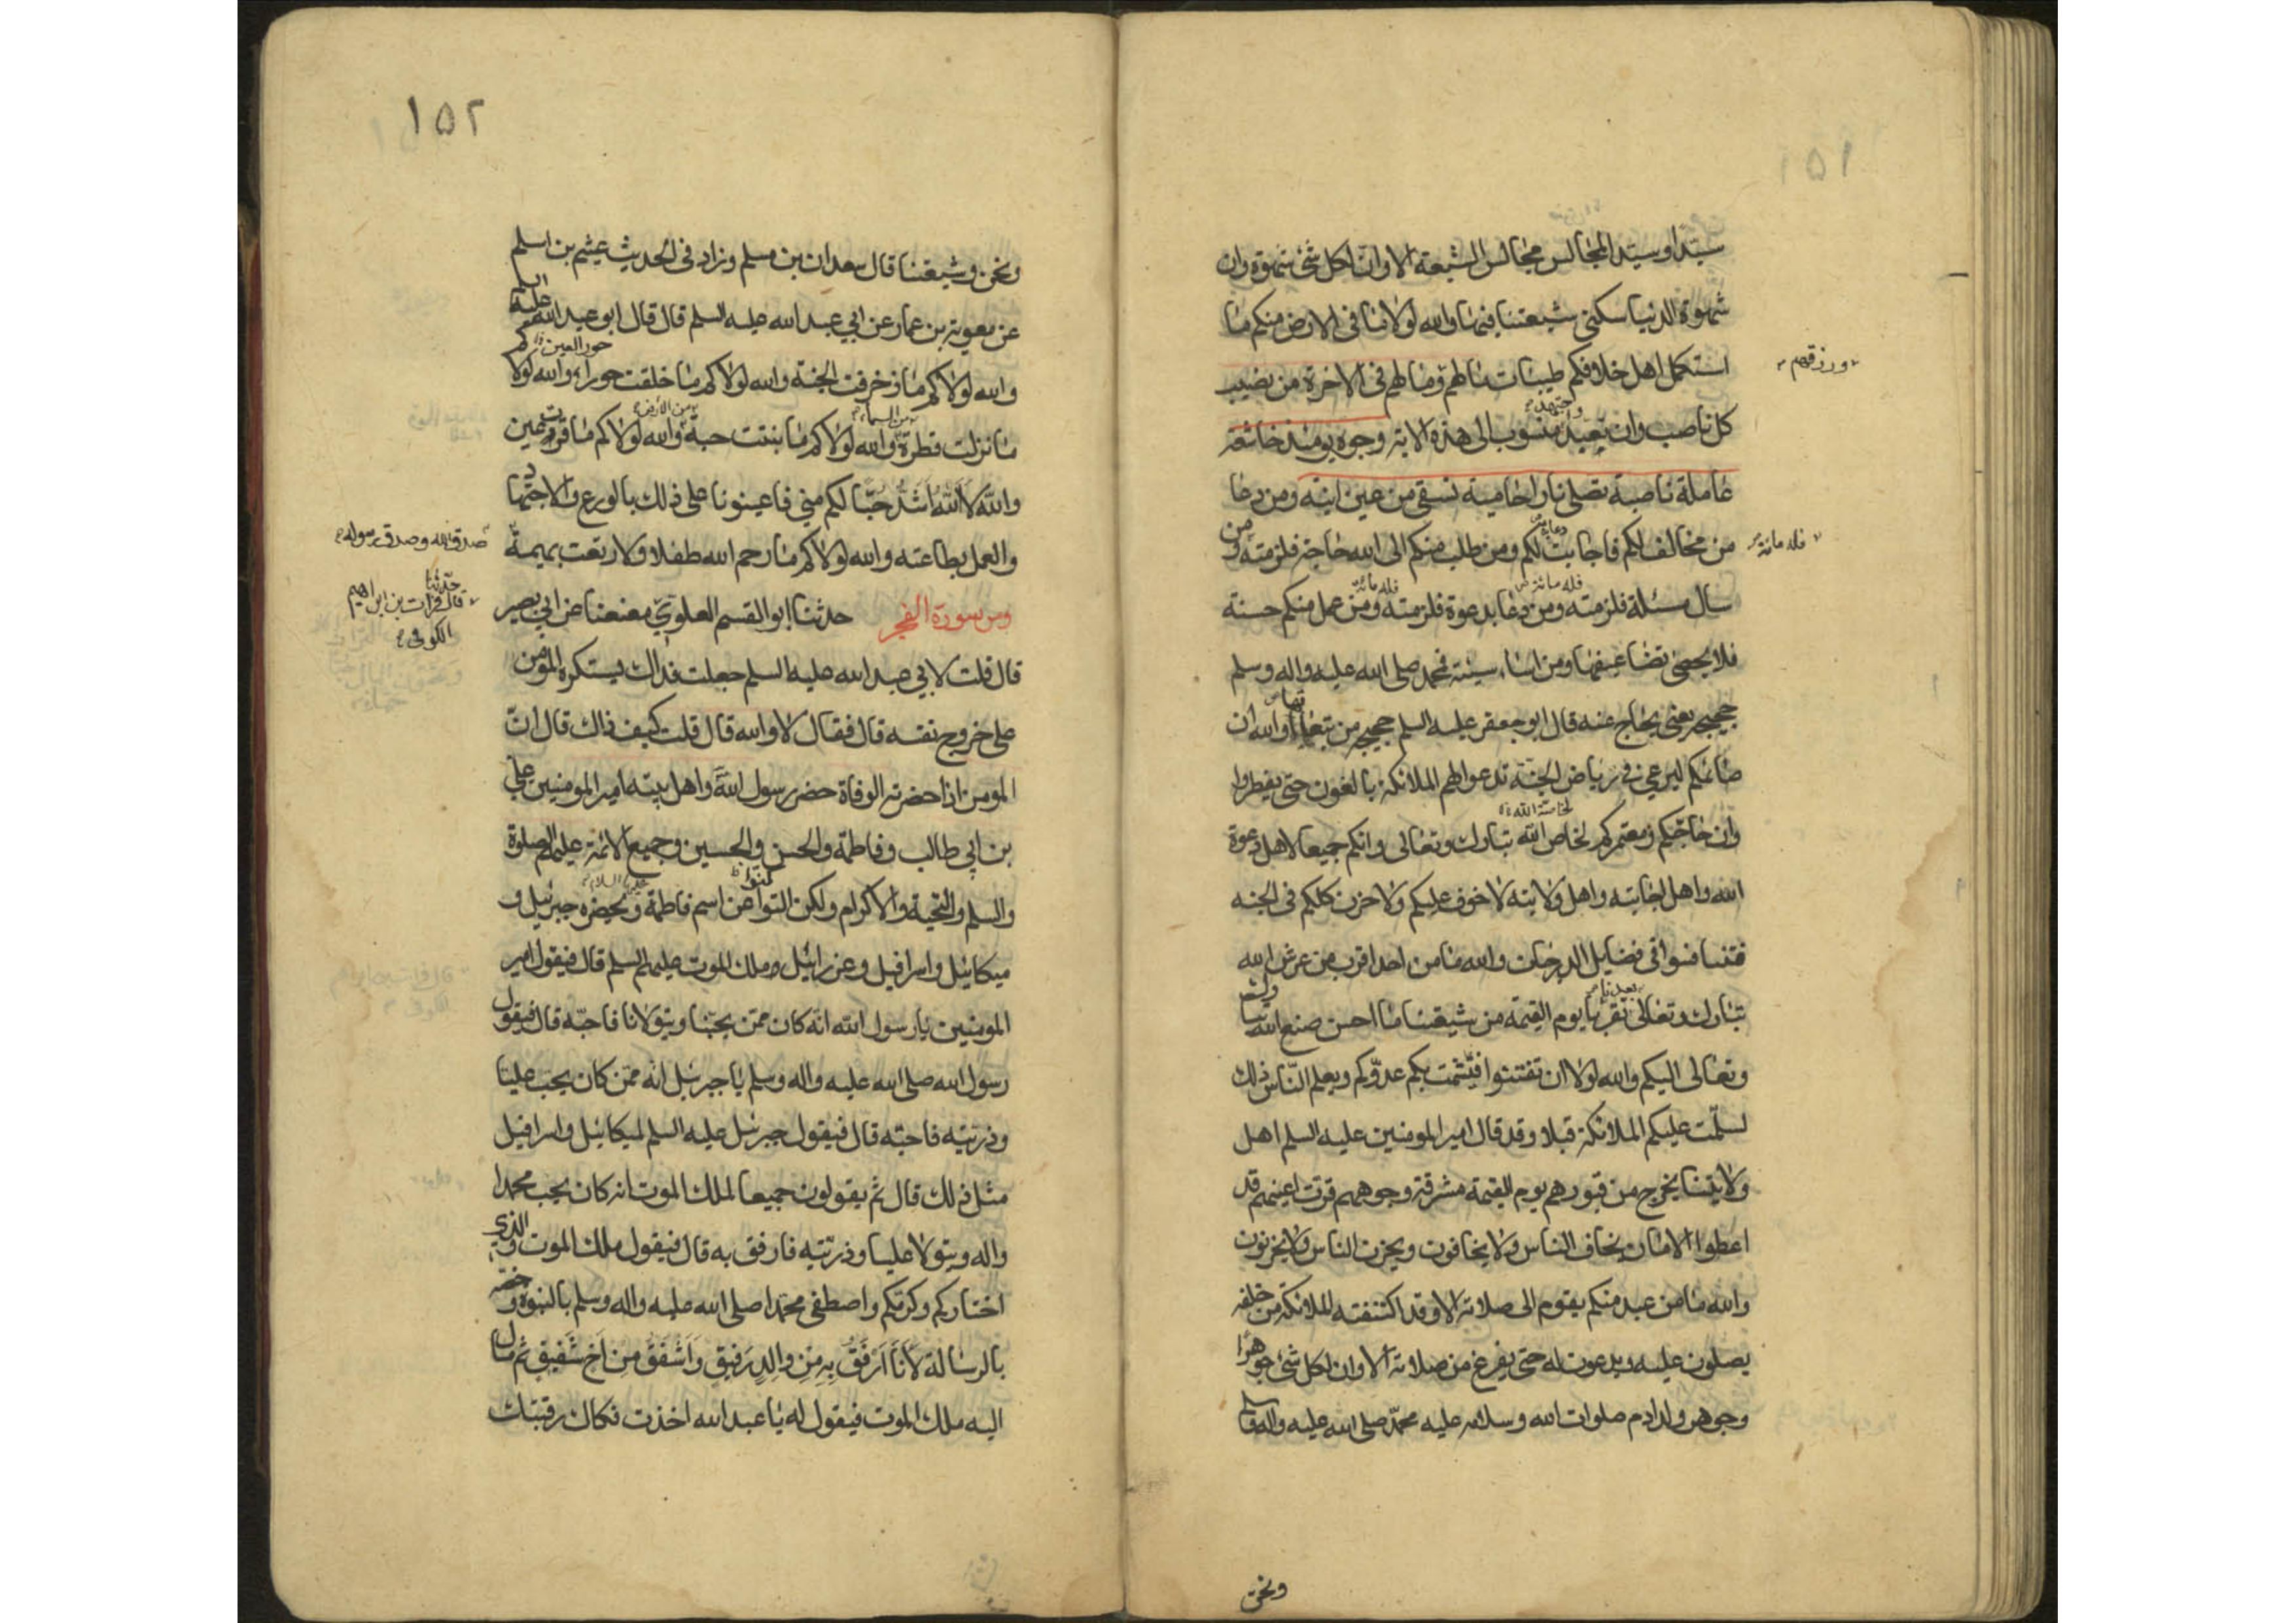 ١٥١
سيدا وسيد المجالس مجالس الشيعة الا وان لكل شئ شهوة وان
شهوة الدنيا سكنى شيعتنا فيها والله لولا ما فى الارض منكم ما
استكمل اهل خلافكم طيبات مالهم ومالهم فى الاخرة من نصيب
ورزقهم
كل ناصب وان تعبد منسوب الى هذه الاية وجوه يومئذ خاشعة
واجتهد
عاملة ناصبة تصلى نارا حامية تسقى من عين انية ومن دعا
من مخالف لكم فاجابت لكم ومن طلب منكم الى الله حاجة فلزمته ومن
دعاية
فله مائة
سال مسئلة فلزمته ومن دعا بدعوة فلزمته ومن عمل منكم حسنة
فله مائة
فله مائة
فلا يحصى تضاعيفها ومن اساء سيئة فمحمد صلى الله عليه واله وسلم
حجيجه يعنى يحاج عنه قال ابو جعفر عليه السلم حجيجه من تبعها والله ان
صائمكم ليرعى فى رياض الجنة تدعوا لهم الملائكة بالعون حتى يفطروا
وان حاجكم ومعتمركم لخاص الله تبارك وتعالى وانكم جميعا لاهل دعوة
لخاصة الله
الله واهل اجابته واهل ولايته لا خوف عليكم ولا حزن كلكم فى الجنه
فتنافسوا فى فضايل الدرجات والله ما من احد اقرب من عرش الله
تبارك وتعالى تقربا يوم القيمة من شيعتنا ما احسن صنع الله
بعدنا
وتعالى اليكم والله لولا ان تفتنوا فيشمت بكم عدوكم ويعلم الناس ذلك
لسلمت عليكم الملائكة قبلا وقد قال امير المومنين عليه السلم اهل
ولايتنا يخرج من قبورهم يوم القيمة مشرقة وجوههم قرت اعينهم قد
اعطوا الامان يخاف الناس ولا يخافون ويحزن الناس ولا يحزنون
والله ما من عبد منكم يقوم الى صلاته الا وقد اكتنفته الملائكة من خلفه
يصلون عليه ويدعون له حتى يفرغ من صلاته الا وان لكل شئ جوهرا
وجوهر ولد ادم صلوات الله وسلامه عليه محمد صلى الله عليه واله وسلم
ونحن
١٥٢
ونحن وشيعتنا قال سعدان بن مسلم وزاد فى الحديث عيثم بن اسلم
عن معوية بن عمار عن ابي عبد الله عليه السلم قال قال ابو عبد الله عليه السلم
والله لولاكم ما زخرفت الجنة والله لولاكم ما خلقت حوراء والله لولاكم
حور العين
ما نزلت قطرة والله لولاكم ما بنتت حبة والله لولاكم ما قرت عين
من السماء
من الارض
والله لا الله اشد حبا لكم مني فاعينونا على ذلك بالورع والاجتهاد
والعمل بطاعته والله لولاكم ما رحم الله طفلا ولا رتعت بهيمة
صدق الله وصدق رسوله
ومن سورة الفجر حدثنا ابو القسم العلوي معنعنا عن ابي بصير
قال حدثنا فرات بن ابراهيم
الكوفى
قال قلت لابي عبد الله عليه السلم جعلت فداك يستكره المومن
على خروج نفسه قال فقال لا والله قال قلت كيف ذاك قال ان
المومن اذا حضرته الوفاة حضر رسول الله واهل بيته امير المومنين علي
بن ابي طالب وفاطمة والحسن والحسين وجميع الائمة عليهم الصلوة
والسلم والتحية والاكرام ولكن اكنوا عن اسم فاطمة ويحضره جبرئيل و
عليها السلام
ميكائيل واسرافيل وعزرائيل وملك الموت عليهم السلم قال فيقول امير
المومنين يا رسول الله انه كان ممن يحبنا ويتولانا فاحبه قال فيقول
رسول الله صلى الله عليه واله وسلم يا جبرئيل انه ممن كان يحب عليا
وذريته فاحبه قال فيقول جبرئيل عليه السلم لميكائيل واسرافيل
مثل ذلك قال ثم يقولون جميعا لملك الموت انه كان يحب محمدا
واله ويتولا عليا وذريته فارفق به قال فيقول ملك الموت والذي
اختاركم وكرمكم واصطفى محمدا صلى الله عليه واله وسلم بالنبوة وخصه
بالرسالة لَأَنَا اَرْفَقُ بِهِ مِنِ والِدٍ رَفيقٍ وَاَشْفَقُ مِن اَخ شَفيقٍ ثم مال
اليه ملك الموت فيقول له يا عبد الله اخذت فكاك رقبتك